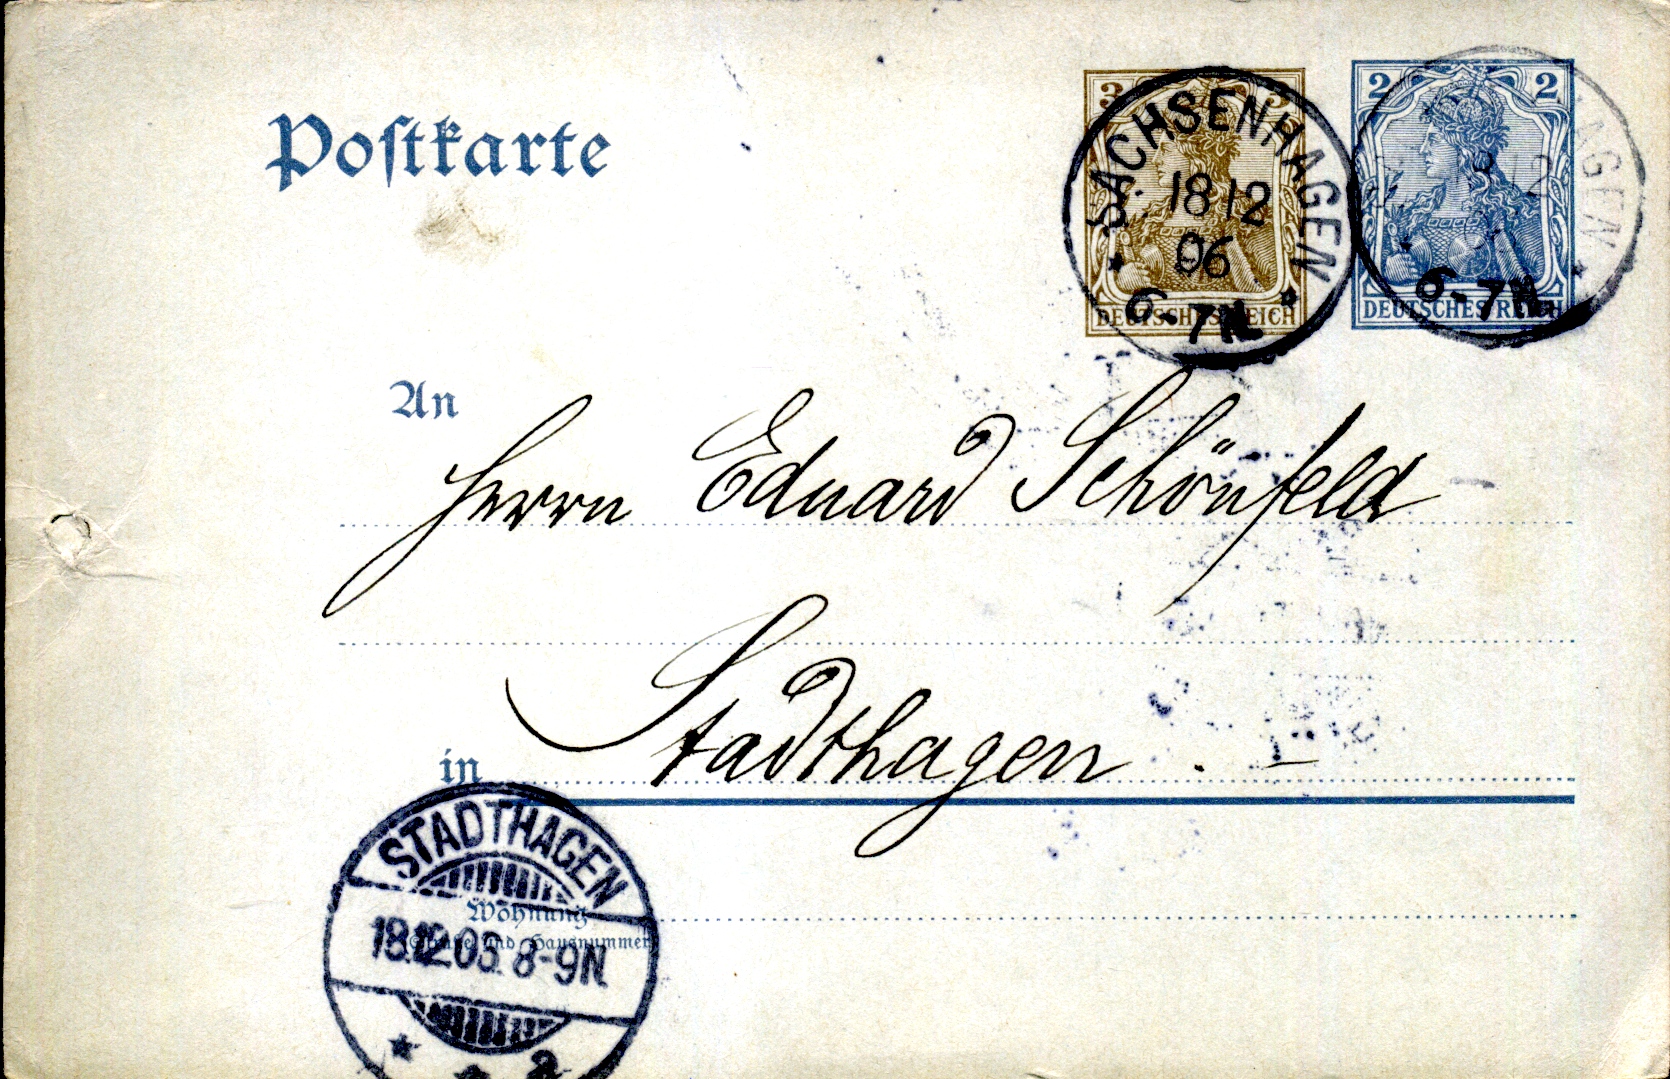 Postkarte
3 3
DEUTSCHES REICH
SACHSENHAGEN
18 12
06
6-7N.
2 2
DEUTSCHES REICH
HAGEN
12
6-7N
An
Herrn Eduard Schönfeld
in Stadthagen.
STADTHAGEN
18.12.06. 8-9N
* a
Wohnung
(Straße und Hausnummer)